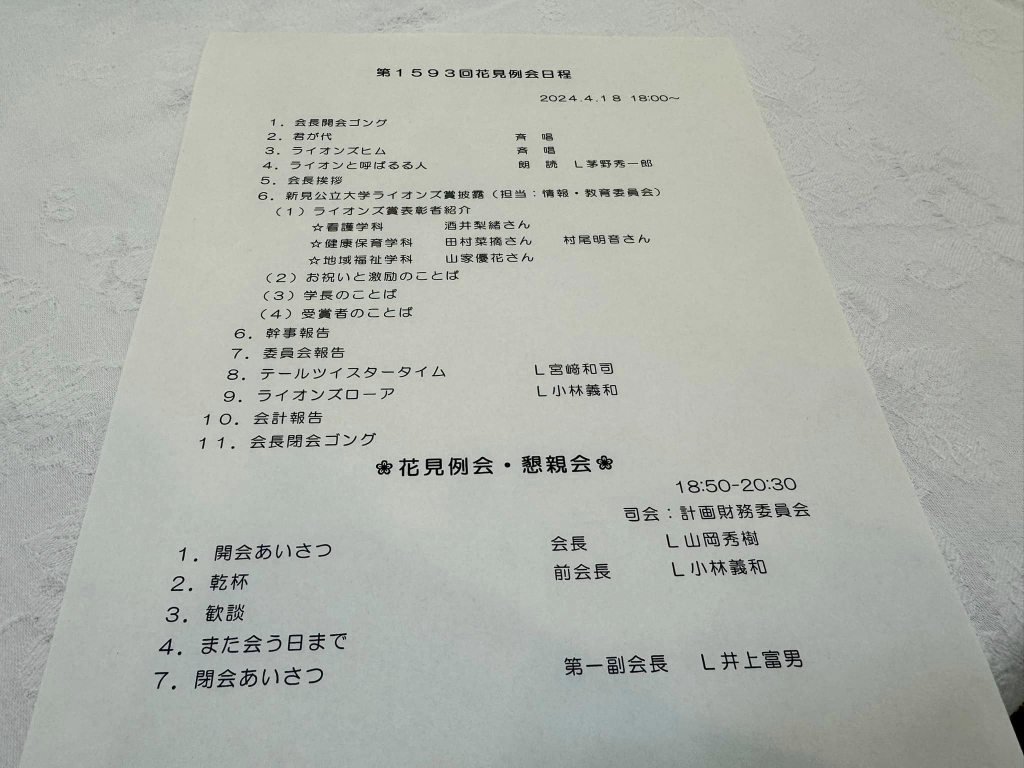 第１５９３回花見例会日程
2024.4.18 18:00～
１．会長開会ゴング
２．君が代 斉 唱
３．ライオンズヒム 斉 唱
４．ライオンと呼ばるる人 朗 読 Ｌ茅野秀一郎
５．会長挨拶
６．新見公立大学ライオンズ賞披露（担当：情報・教育委員会）
（１）ライオンズ賞表彰者紹介
☆看護学科 酒井梨緒さん
☆健康保育学科 田村菜摘さん 村尾明音さん
☆地域福祉学科 山家優花さん
（２）お祝いと激励のことば
（３）学長のことば
（４）受賞者のことば
６．幹事報告
７．委員会報告
８．テールツイスタータイム Ｌ宮﨑和司
９．ライオンズローア Ｌ小林義和
１０．会計報告
１１．会長閉会ゴング
❀花見例会・懇親会❀
18:50-20:30
司会：計画財務委員会
１．開会あいさつ 会長 Ｌ山岡秀樹
２．乾杯 前会長 Ｌ小林義和
３．歓談
４．また会う日まで
７．閉会あいさつ 第一副会長 Ｌ井上富男